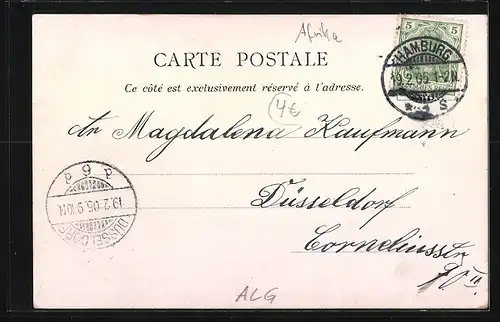 Afrika
5 5
CARTE POSTALE
HAMBURG
19.2.05.1-2N.
S.
Ce côté est exclusivement réservé à l'adresse.
4€
Magdalena Kaufmann
Düsseldorf
Corneliusstr
90 II.
DÜSSELDORF
19.2.05.9-10N.
ALG